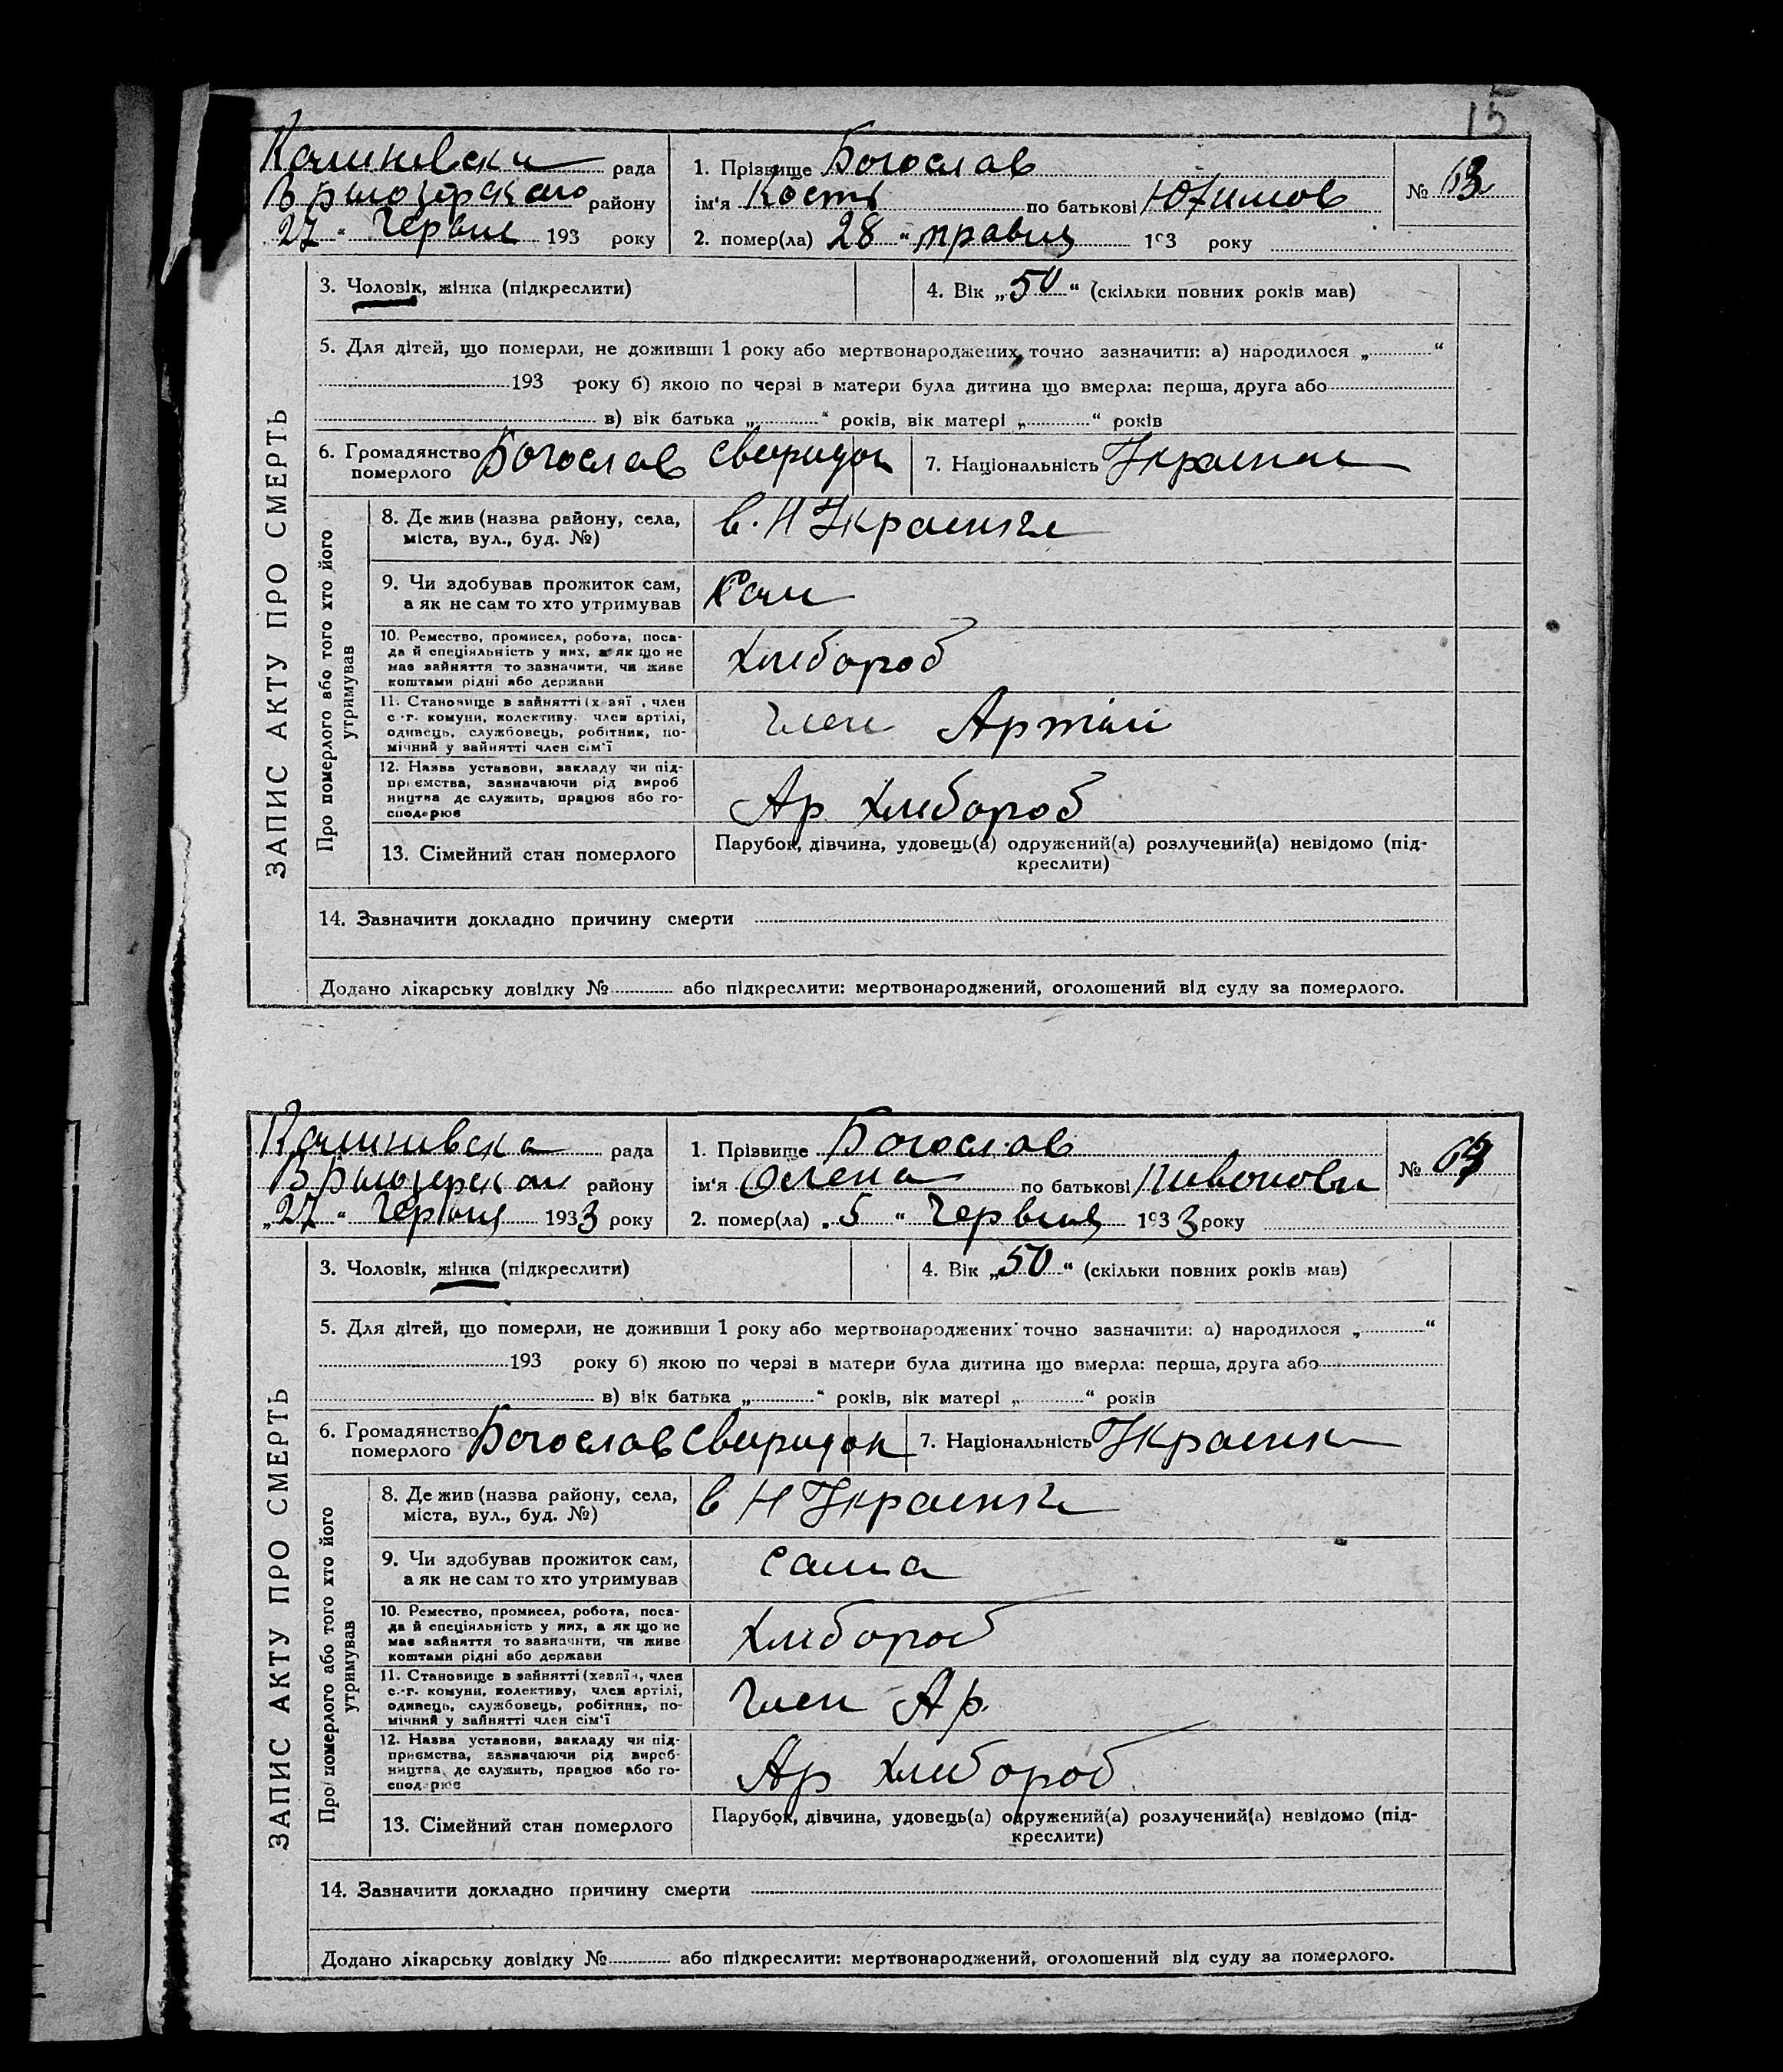 15
Калинівська рада
1. Прізвище Богослав
№ 63
Білозерского району
ім'я Кость по батькові Юхимов
27 " Червня 193 року
2. помер(ла) 28 " травня 193 року
3. Чоловік, жінка (підкреслити)
4. Вік „50“ (скільки повних років мав)
5. Для дітей, що померли, не доживши 1 року або мертвонароджених, точно зазначити: а) народилося „ “
193 року б) якою по черзі в матери була дитина що вмерла: перша, друга або
в) вік батька „ “ років, вік матері „ “ років
6. Громадянство померлого Богослав Свиридон
7. Національність Украинец
ЗАПИС АКТУ ПРО СМЕРТЬ
Про померлого або того хто його утримував
8. Де жив (назва району, села,
міста, вул., буд. №)
в. Н Украинка
9. Чи здобував прожиток сам,
а як не сам то хто утримував
Сам
10. Ремество, промисел, робота, поса-
да й спеціяльність у них, а як що не
має зайняття то зазначити, чи живе
коштами рідні або держави
Хлибороб
11. Становище в зайнятті (х заї , член
с.-г. комуни, колективу, член артілі,
одинець, службовець, робітник, по-
мічний у зайнятті член сім'ї
член Артілі
12. Назва установи, закладу чи під-
приємства, зазначаючи рід вироб
ництва де служить, працює або го-
сподарює
Ар Хлибороб
13. Сімейний стан померлого
Парубок, дівчина, удовець(а) одружений(а) розлучений(а) невідомо (під-
креслити)
14. Зазначити докладно причину смерти
Додано лікарську довідку № або підкреслити: мертвонароджений, оголошений від суду за померлого.
Калинивска рада
1. Прізвище Богослав
№ 64
Білозерскаи району
ім'я Олена по батькові Пивонови
„27 " Червня 1933 року
2. помер(ла) „5 " Червня 1933 року
3. Чоловік, жінка (підкреслити)
4. Вік „50“ (скільки повних років мав)
5. Для дітей, що померли, не доживши 1 року або мертвонароджених точно зазначити: а) народилося „ “
193 року б) якою по черзі в матери була дитина що вмерла: перша, друга або
в) вік батька „ “ років, вік матері „ “ років
6. Громадянство померлого Богослав Свиридон
7. Національність Украинка
ЗАПИС АКТУ ПРО СМЕРТЬ
Про померлого або того хто його утримував
8. Де жив (назва району, села,
міста, вул., буд. №)
в Н Украинка
9. Чи здобував прожиток сам,
а як не сам то хто утримував
Сама
10. Ремество, промисел, робота, поса-
да й спеціяльність у них, а як що не
має зайняття то зазначити, чи живе
коштами рідні або держави
Хлибороб
11. Становище в зайнятті (хазяїн, член
с.-г. комуни, колективу, член артілі,
одинець, службовець, робітник, по-
мічний у зайнятті член сім'ї
член Ар.
12. Назва установи, закладу чи під-
приємства, зазначаючи рід вироб-
ництва де служить, працює або го-
сподарює
Ар Хлибороб
13. Сімейний стан померлого
Парубок, дівчина, удовець(а) одружений(а) розлучений(а) невідомо (під-
креслити)
14. Зазначити докладно причину смерти
Додано лікарську довідку № або підкреслити: мертвонароджений, оголошений від суду за померлого.